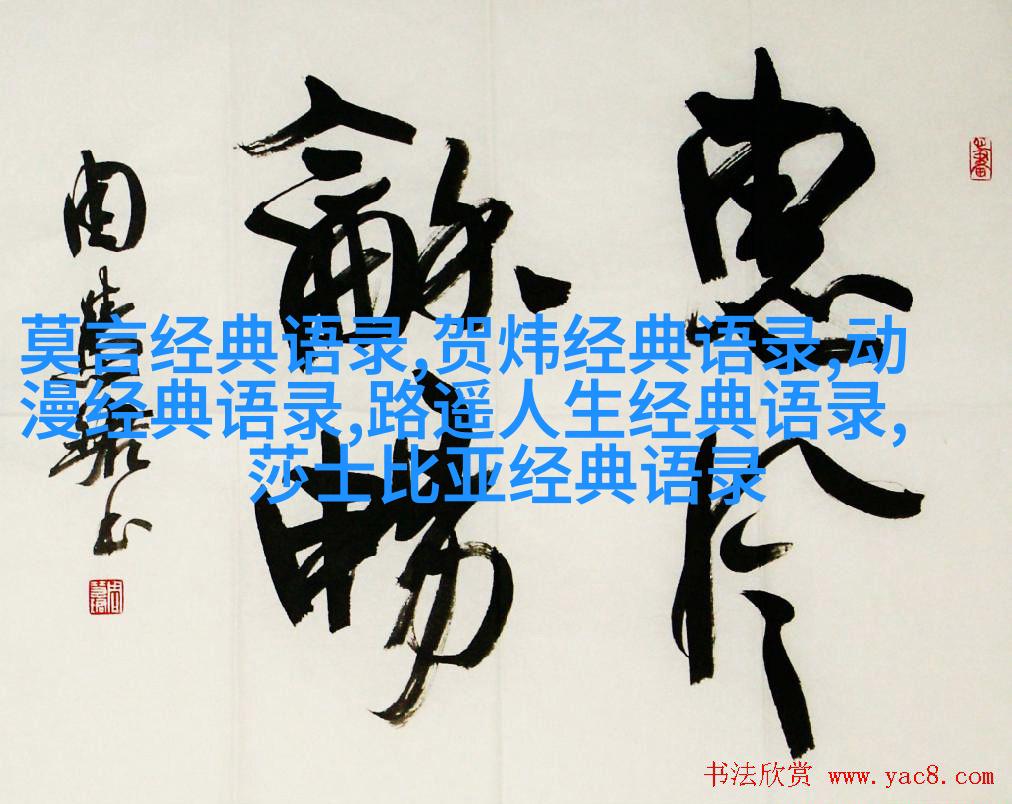 惠风
龢畅
周慧珺书
莫言经典语录,贺炜经典语录,动
漫经典语录,路遥人生经典语录,
莎士比亚经典语录
书法欣赏 www.yac8.com